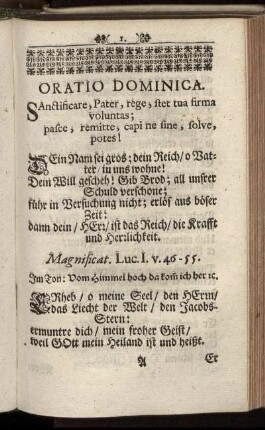 1.
ORATIO DOMINICA.
SAnctificare, Pater, rege, stet tua firma
voluntas;
pasce, remitte, capi ne sine, solve,
potes!
DEin Nam sei gros: dein Reich/ o Vat-
ter/ in uns wohne!
Dein Will gescheh! Gib Brod; all unsrer
Schuld verschone;
führ in Versuchung nicht; erlös aus böser
Zeit:
dann dein/ HErr/ ist das Reich/ die Krafft
und Herrlichkeit.
Magnificat. Luc. I. v. 46-55.
Im Ton: Vom Himmel hoch da kom̃ ich her ꝛc.
ERheb/ o meine Seel/ den HErrn/
das Liecht der Welt/ den Jacobs-
Stern:
ermuntre dich/ mein froher Geist/
weil GOtt mein Heiland ist und heißt.
A Er